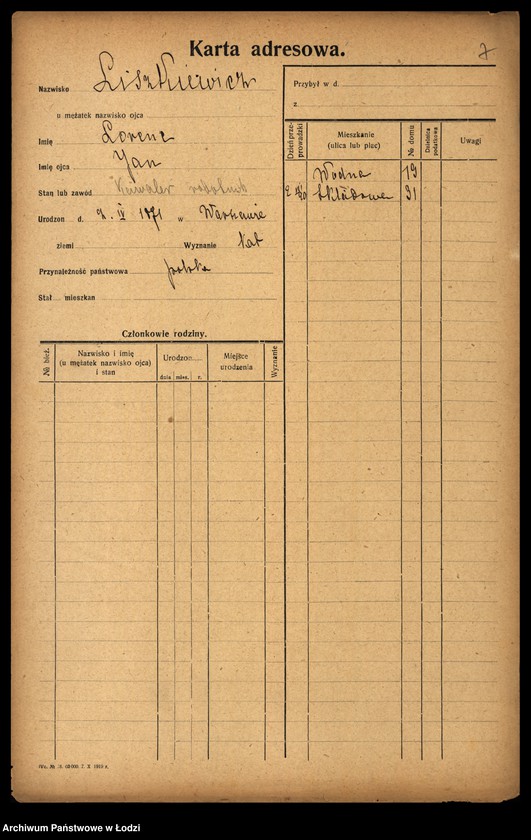 Karta adresowa.
7
Nazwisko Liszkiewicz
u mężatek nazwisko ojca
Imię Lorenc
Imię ojca Jan
Stan lub zawód Kawaler robotnik
Urodzon d. 2. IV 1871 w Warszawie
ziemi Wyznanie kat
Przynależność państwowa polska
Stał. mieszkan
Przybył w d.
z
Dzień przeprowadzki
Mieszkanie
(ulica lub plac)
№ domu
Dzielnica podatkowa
Uwagi
Wodna 19
Składowa 31
Członkowie rodziny.
№ bież.
Nazwisko i imię
(u mężatek nazwisko ojca)
i stan
Urodzon
dnia mies. r.
Miejsce
urodzenia
Wyznanie
7. X. 1919 r.
Archiwum Państwowe w Łodzi